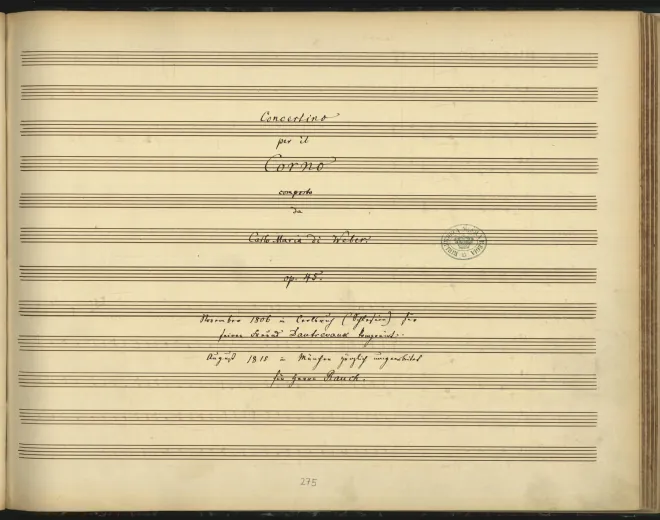 Concertino
per il
Corno
composto
da
Carlo Maria di Weber
op. 45.
November 1806 in Carlsruh (Schlesien) für
seinen Freund Dautrevaux componirt.
August 1815 in München gänzlich umgearbeitet
für Herrn Rauch.
275